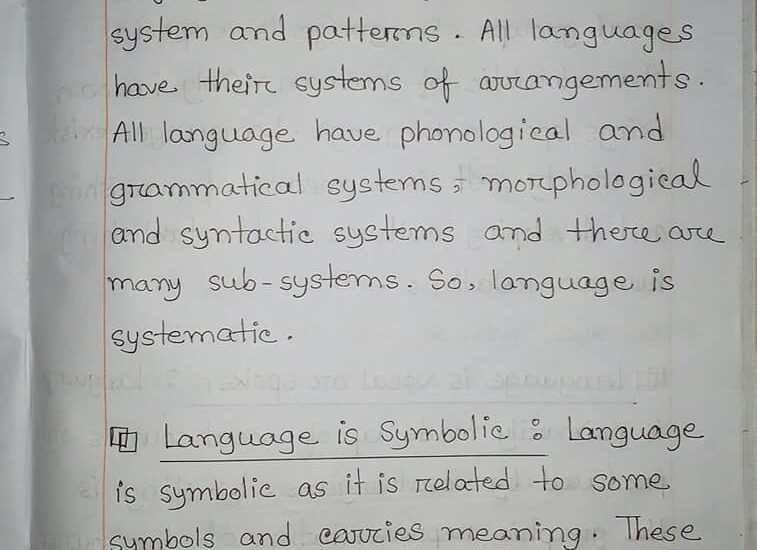 system and patterns. All languages
have their systems of arrangements.
All language have phonological and
grammatical systems; morphological
and syntactic systems and there are
many sub-systems. So, language is
systematic.
Language is Symbolic : Language
is symbolic as it is related to some
symbols and carries meaning. These